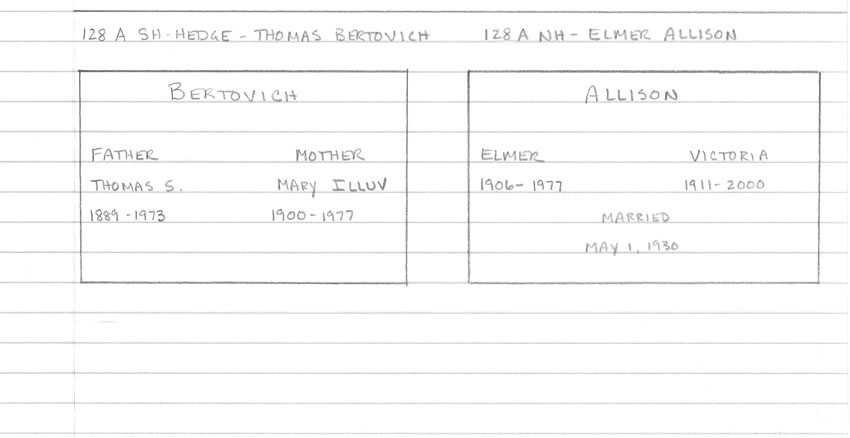 128 A SH-HEDGE - THOMAS BERTOVICH
BERTOVICH
FATHER MOTHER
THOMAS S. MARY ILLUV
1889-1973 1900-1977
128 A NH- ELMER ALLISON
ALLISON
ELMER VICTORIA
1906-1977 1911-2000
MARRIED
MAY 1, 1930